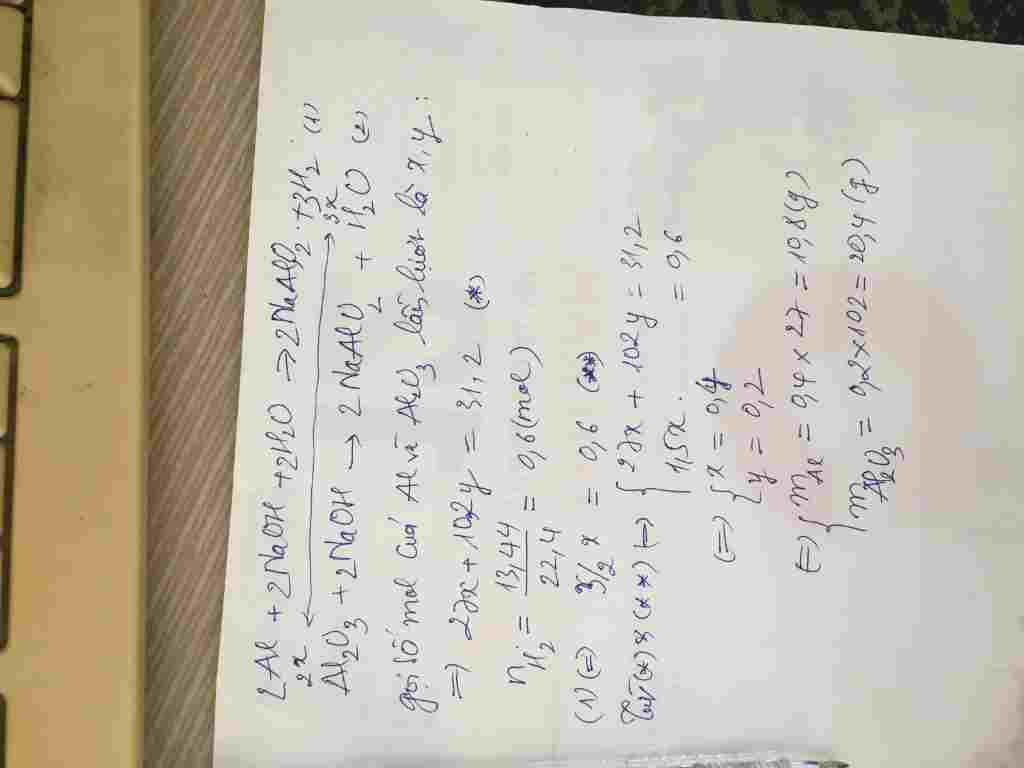 2Al + 2NaOH + 2H2O → 2NaAlO2 + 3H2 (1)
2x 3x
Al2O3 + 2NaOH → 2NaAlO2 + H2O (2)
gọi số mol của Al và Al2O3 lần lượt là x, y :
=> 27x + 102y = 31,2 (*)
nH2 = 13,44/22,4 = 0,6 (mol)
(1) (=) 3/2 x = 0,6 (**)
Từ (*) & (**) => { 27x + 102y = 31,2
1,5x = 0,6
(=) { x = 0,4
y = 0,2
(=) { mAl = 0,4 x 27 = 10,8 (g)
mAl2O3 = 0,2 x 102 = 20,4 (g)